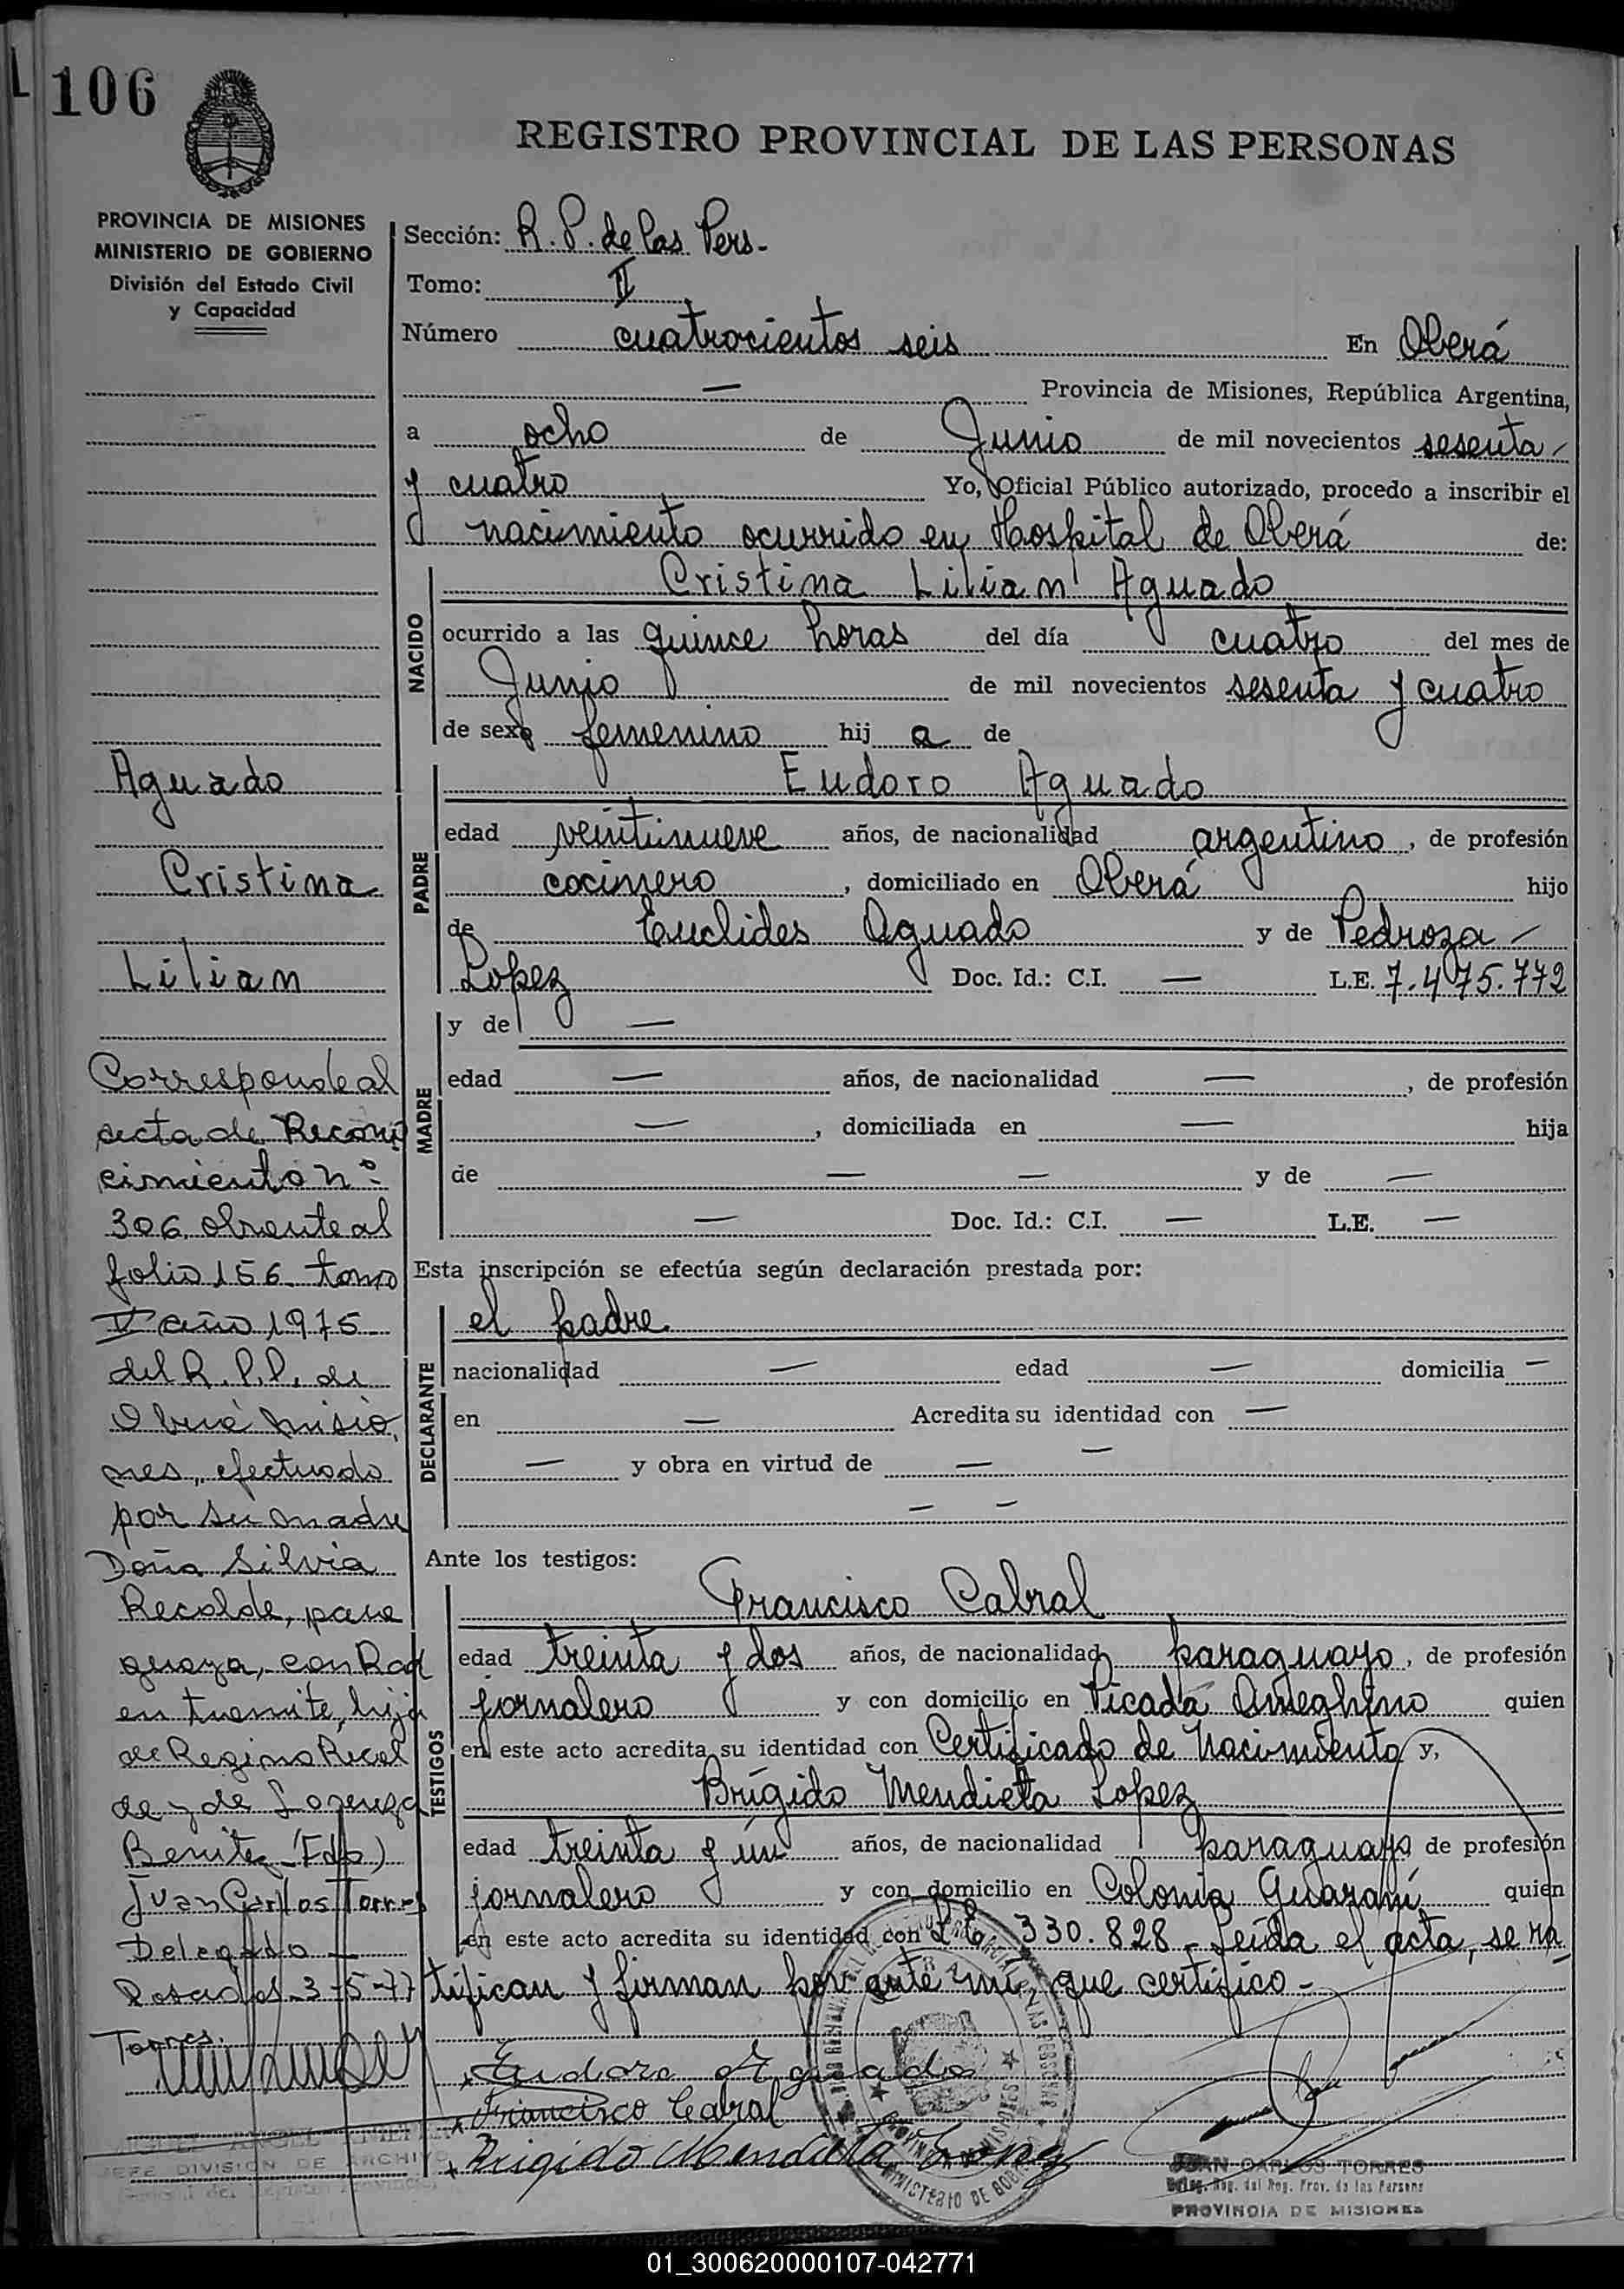 106
REGISTRO PROVINCIAL DE LAS PERSONAS
PROVINCIA DE MISIONES
MINISTERIO DE GOBIERNO
División del Estado Civil
y Capacidad
Sección: R. P. de las Pers-
Tomo: II
Número cuatrocientos seis En Oberá
— Provincia de Misiones, República Argentina,
a ocho de Junio de mil novecientos sesenta
y cuatro Yo, Oficial Público autorizado, procedo a inscribir el
nacimiento ocurrido en Hospital de Oberá de:
NACIDO
Cristina Lilian Aguado
ocurrido a las quince horas del día cuatro del mes de
Junio de mil novecientos sesenta y cuatro
de sexo femenino hij a de
PADRE
Eudoro Aguado
edad veintinueve años, de nacionalidad argentino, de profesión
cocinero, domiciliado en Oberá hijo
de Euclides Aguado y de Pedroza -
Lopez Doc. Id.: C.I. — L.E. 7.475.772
MADRE
y de —
edad — años, de nacionalidad —, de profesión
—, domiciliada en — hija
de — — y de —
— Doc. Id.: C.I. — L.E. —
Esta inscripción se efectúa según declaración prestada por:
DECLARANTE
el padre
nacionalidad — edad — domicilia —
en — Acredita su identidad con —
— y obra en virtud de — —
— —
Ante los testigos:
TESTIGOS
Francisco Cabral
edad treinta y dos años, de nacionalidad paraguayo, de profesión
jornalero y con domicilio en Picada Ameghino quien
en este acto acredita su identidad con Certificado de Nacimiento y,
Brígido Mendieta Lopez
edad treinta y ún años, de nacionalidad paraguayo de profesión
jornalero y con domicilio en Colonia Guaraní quien
en este acto acredita su identidad con L.E. 330.828 - Leída el acta, se ra
tifican y firman por ante mí, que certifico -
Eudoro Aguado
Francisco Cabral
Brigido Mendieta Lopez
Aguado
Cristina
Lilian
Corresponde al
acta de Recono
cimiento nº
306 obrante al
folio 156 tomo
V año 1975
del R. P. P. de
Oberá Misio
nes, efectuado
por su madre
Doña Silvia
Recalde, para
guaya, con Rad
en tramite, hija
de Regino Recal
de y de Lorenza
Benitez (Fdo)
Juan Carlos Torres
Delegado
Posadas 3-5-77
Torres.
JEFE DIVISION DE ARCHIVO
MINISTERIO DE GOBIERNO
PROVINCIA DE MISIONES
JUAN CARLOS TORRES
Deleg. Reg. del Reg. Prov. de las Persona
PROVINCIA DE MISIONES
01_300620000107-042771